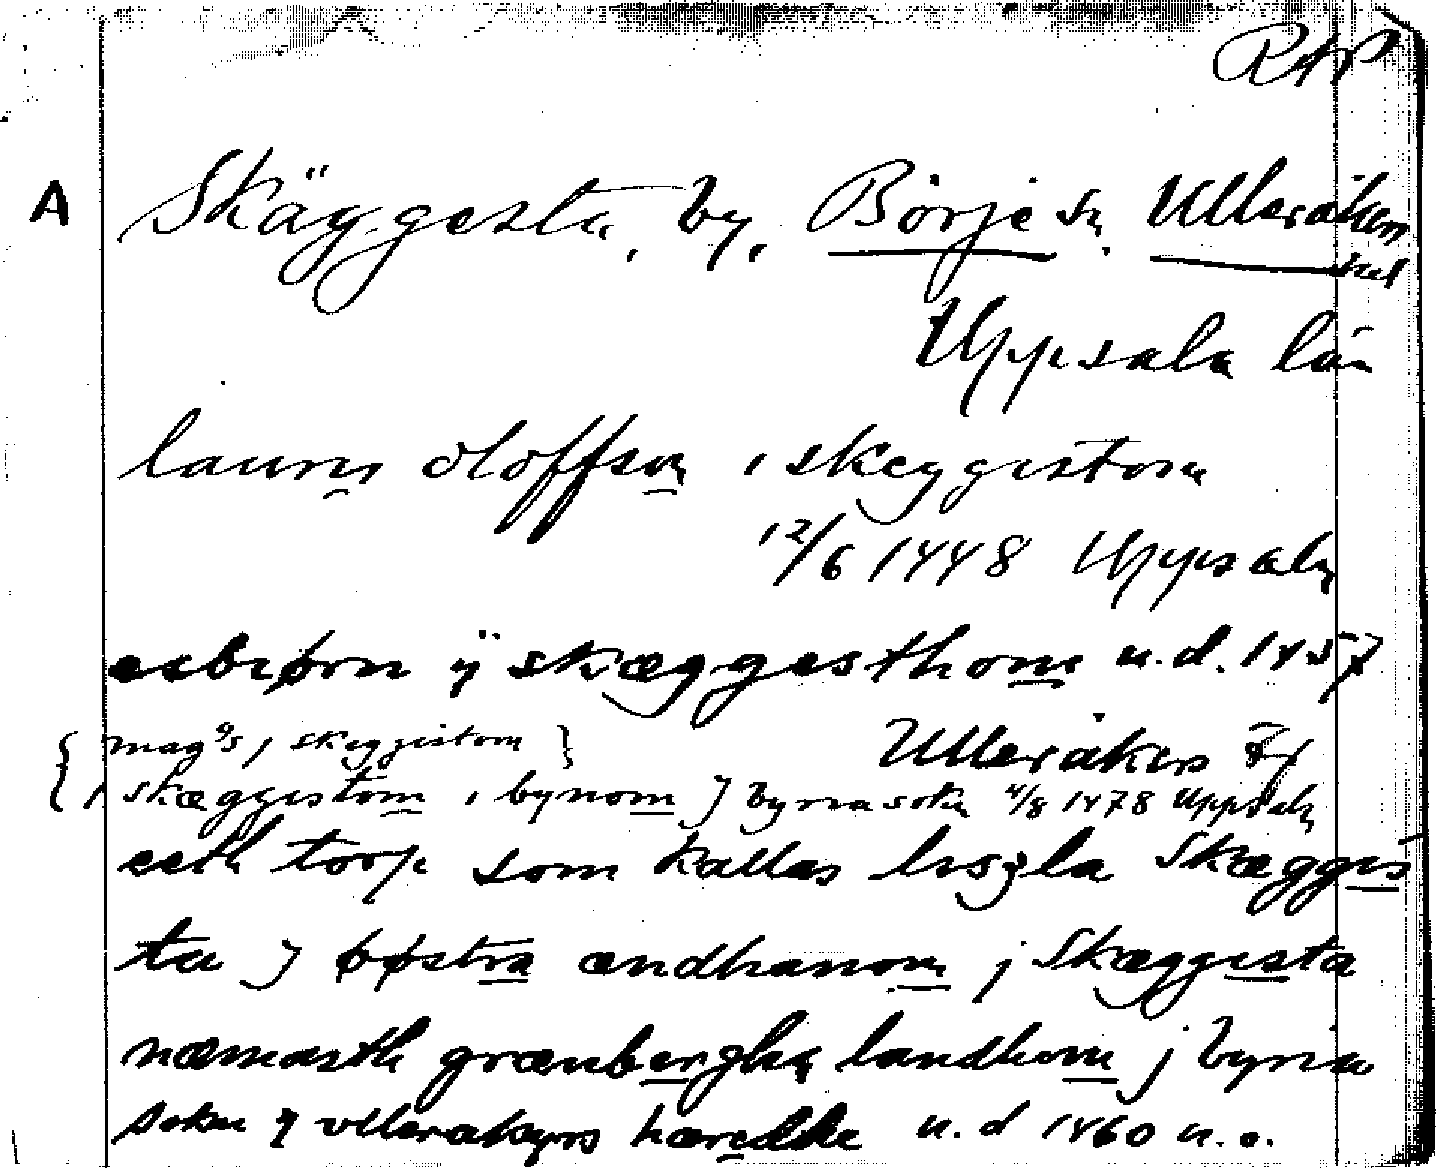 RAP
A Skäggesta, by, Börje sn. Ulleråkers
hd
Uppsala län
laurus oloffson i skeggistom
12/6 1448 Uppsala
esbiørn ÿ skæggesthom u.d. 1457
Ulleråkers
{ magns i skeggistom }
{ i skæggistom i bynom j byrna sokn 4/8 1478 Uppsala
eeth torp som kallas liszla Skæggis
ta j øøstra ændhanom j Skæggista
næmasth grænbergha landhom j byria
sokn ÿ vllerakers hæredhe u.d 1460 u.o.